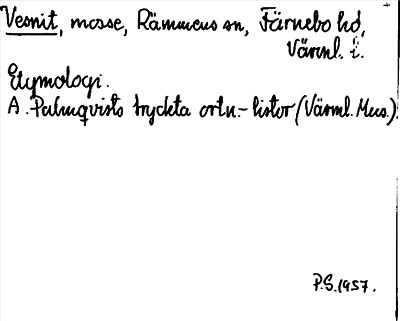 Vesnit, mosse, Rämmens sn, Färnebo hd,
Värml. l.
Etymologi.
A. Palmqvists tryckta ortn.-listor (Värml. Mus.).
P.S. 1957.